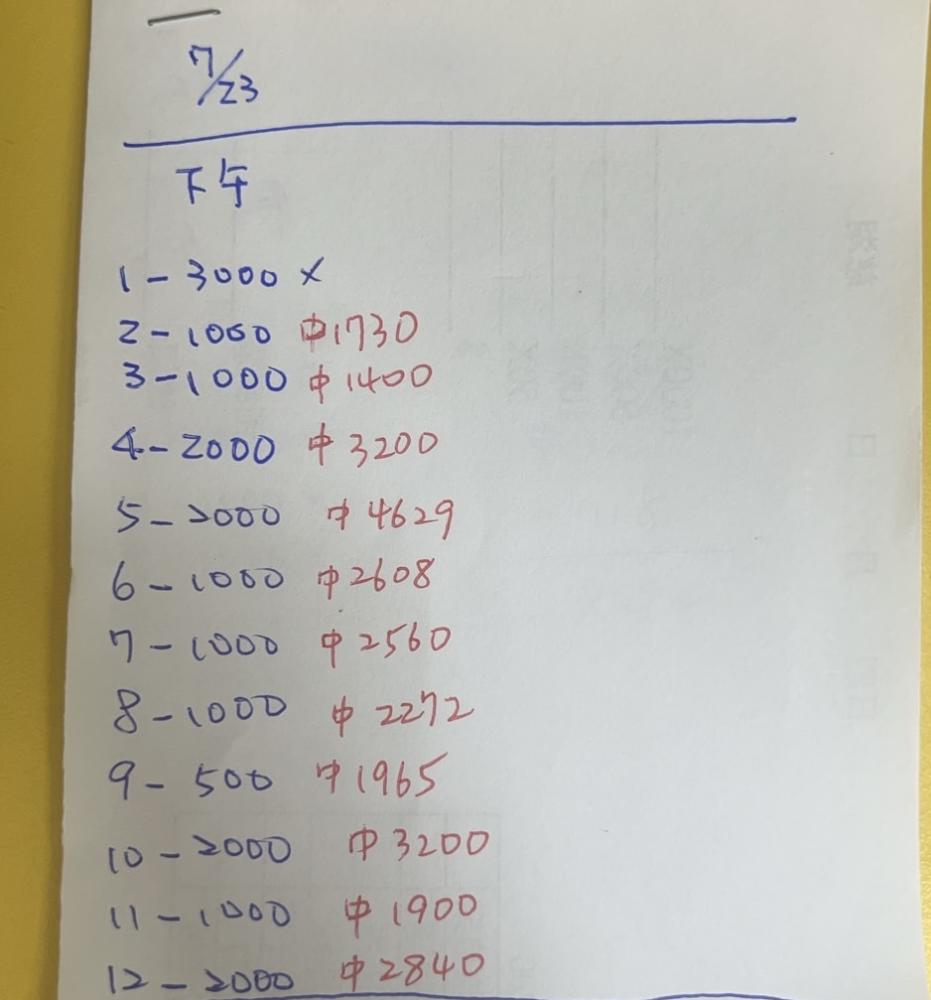 7/23
下午
1-3000 x
2-1000 中1730
3-1000 中1400
4-2000 中3200
5-2000 中4629
6-1000 中2608
7-1000 中2560
8-1000 中2272
9-500 中1965
10-2000 中3200
11-1000 中1900
12-2000 中2840